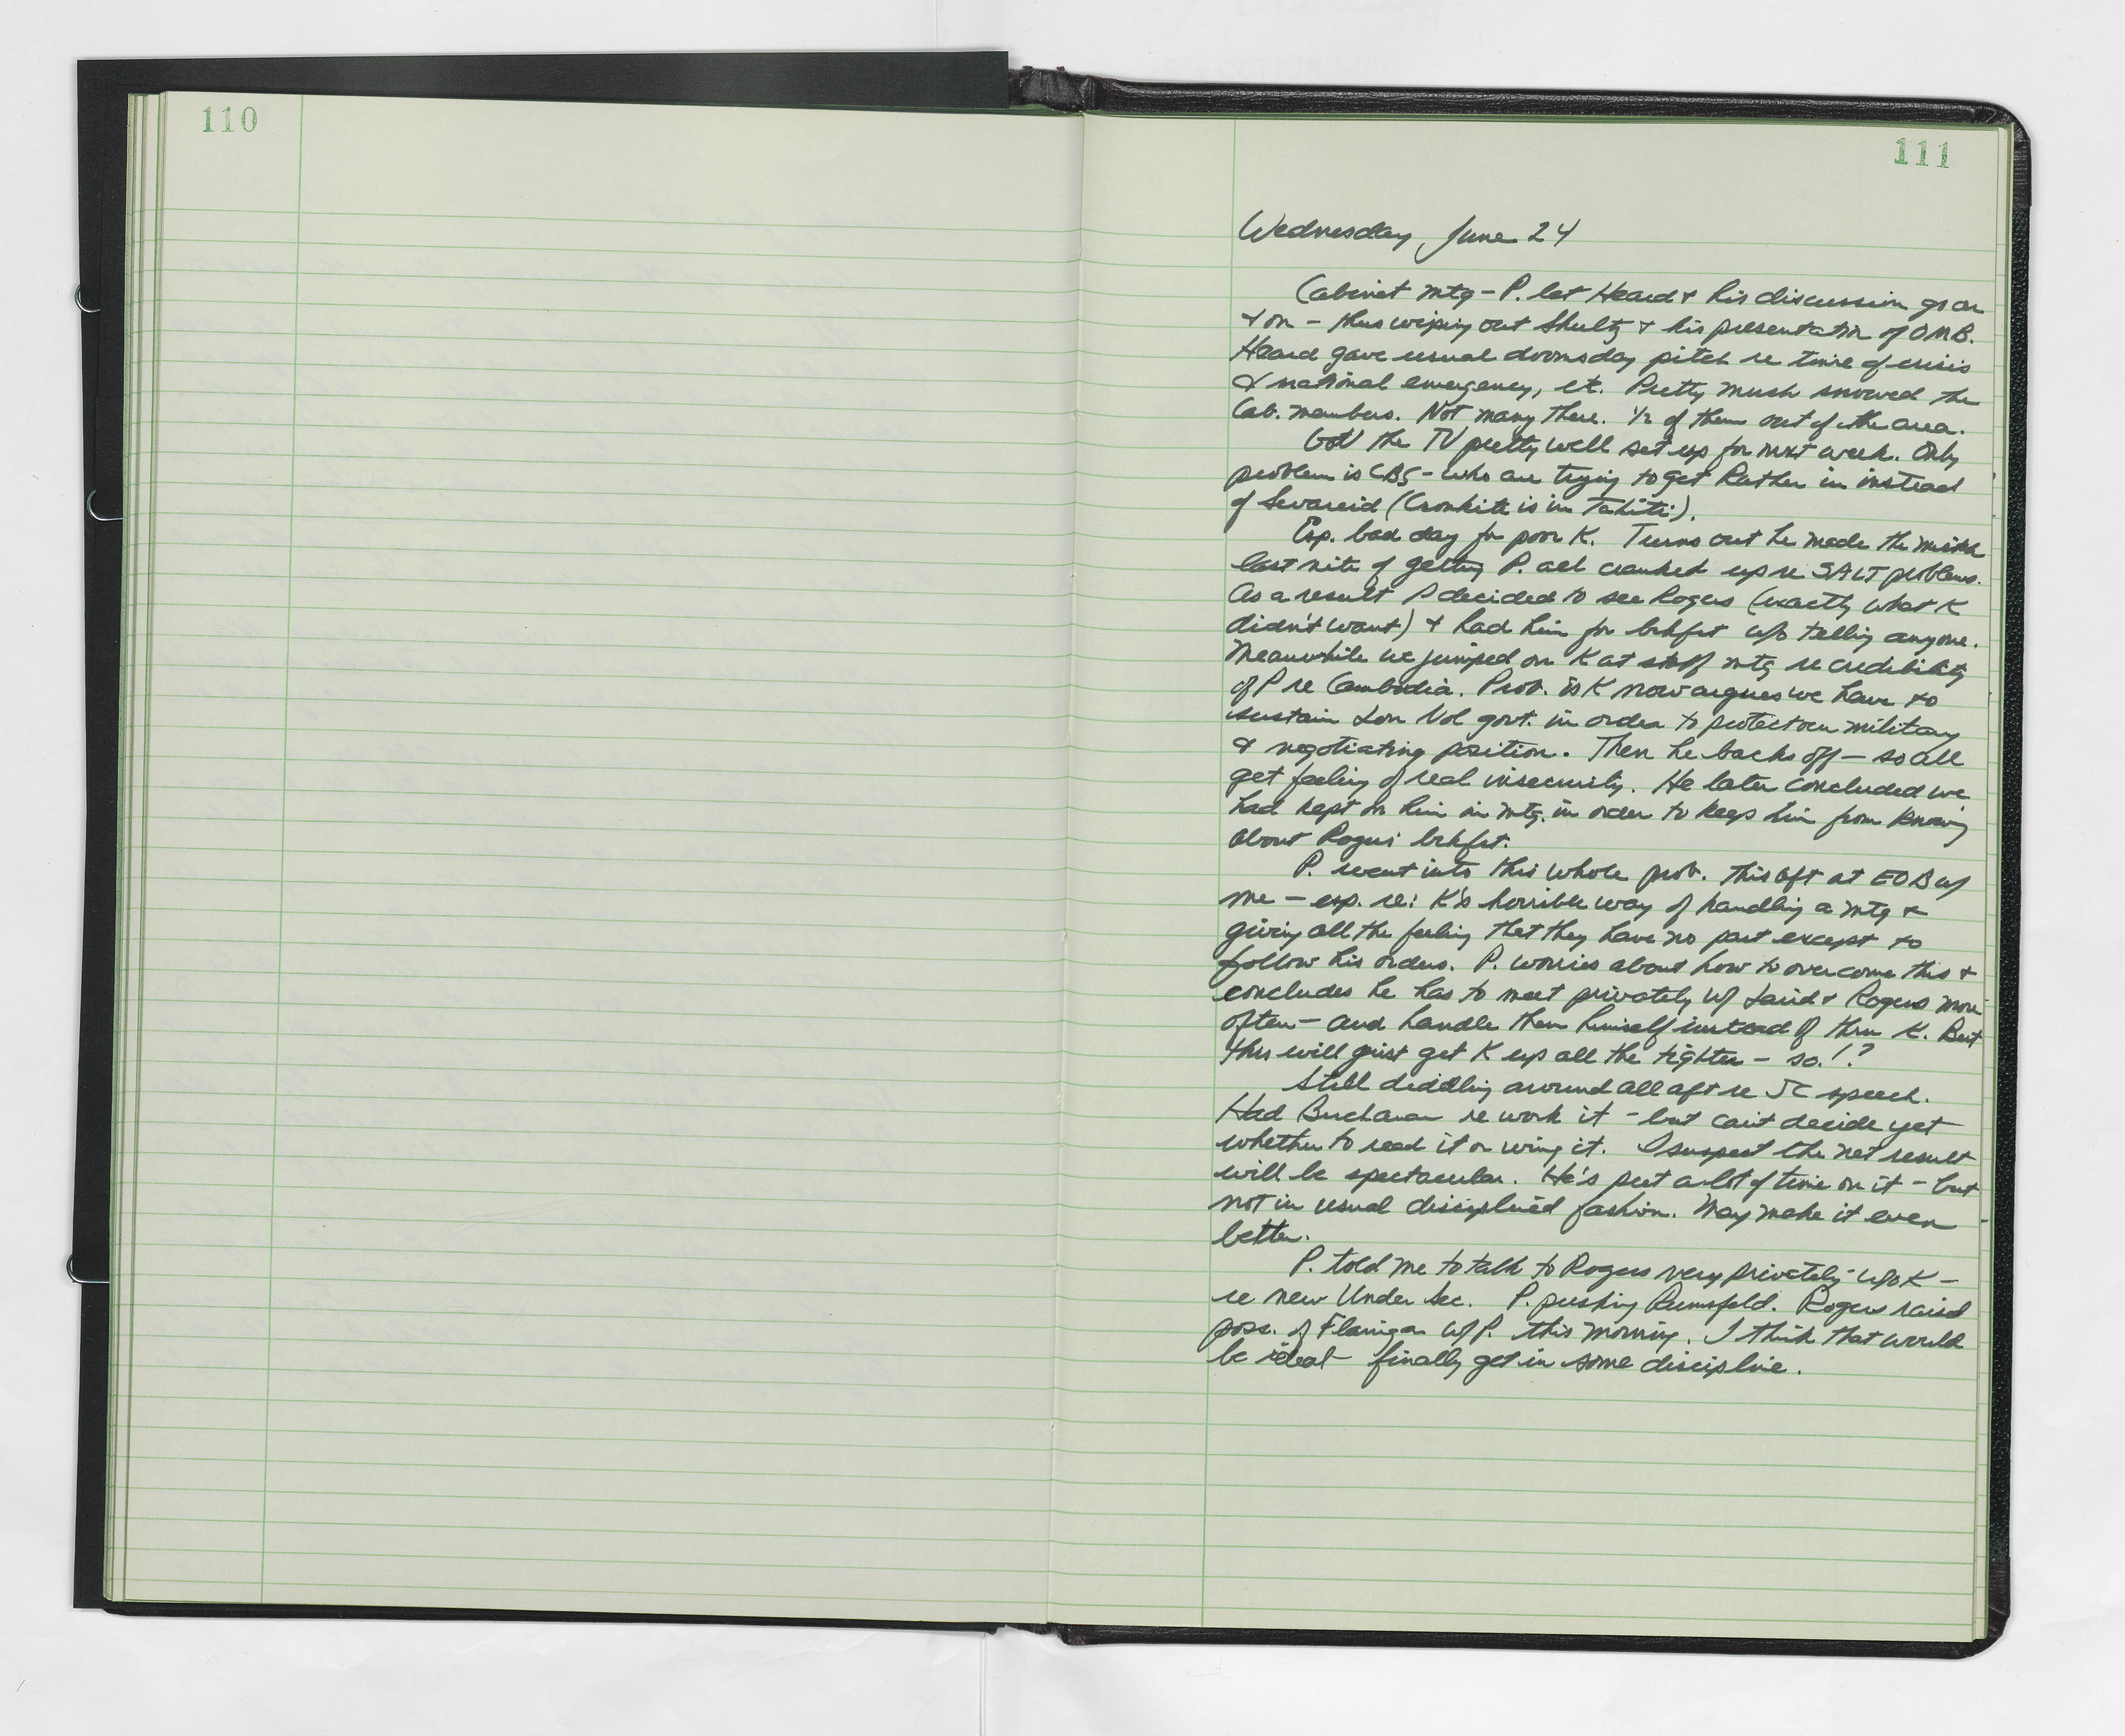 110
111
Wednesday June 24
Cabinet mtg - P. let Heard & his discussion go on
& on - thus wiping out Shultz & his presentation of OMB.
Heard gave usual doomsday pitch re time of crisis
& national emergency, etc. Pretty much snowed the
Cab. members. Not many there. 1/2 of them out of the area.
Got the TV pretty well set up for next week. Only
problem is CBS - who are trying to get Rather in instead
of Sevareid (Cronkite is in Tahiti).
Esp. bad day for poor K. Turns out he made the mistake
last nite of getting P. all cranked up re SALT problems.
As a result P decided to see Rogers (exactly what K
didn't want) & had him for bkfst w/o telling anyone.
Meanwhile we jumped on K at staff mtg re credibility
of P re Cambodia. Prob. is K now argues we have to
sustain Lon Nol govt. in order to protect our military
& negotiating position. Then he backs off - so all
get feeling of real insecurity. He later concluded we
had kept on him in mtg. in order to keep him from knowing
about Rogers' bkfst.
P. went into this whole prob. this aft at EOB w/
me - esp. re: K's horrible way of handling a mtg &
giving all the feeling that they have no part except to
follow his orders. P. worries about how to overcome this &
concludes he has to meet privately w/ Laird & Rogers more
often - and handle them himself instead of thru K. But
this will just get K up all the tighter - so!?
Still diddling around all aft re JC speech.
Had Buchanan re work it - but can't decide yet
whether to read it or wing it. I suspect the net result
will be spectacular. He's put a lot of time on it - but
not in usual disciplined fashion. May make it even
better.
P. told me to talk to Rogers very privately - w/o K -
re new Under Sec. P. pushing Rumsfeld. Rogers raised
poss. of Flanigan w/ P. this morning. I think that would
be ideal - finally get in some discipline.